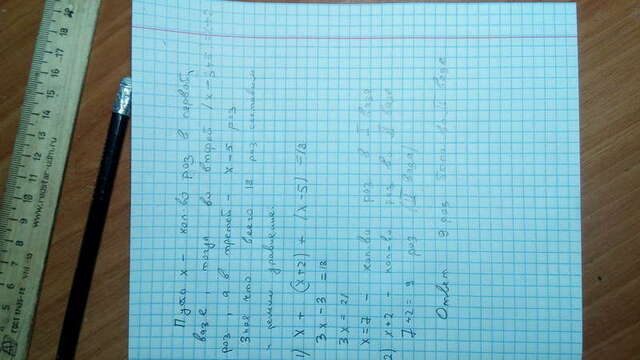 Пусть x - кол-во роз в первой
вазе, тогда во второй
роз, а в третей - x-5 роз
Зная что всего 18 роз составим
и решим уравнение.
1) x + (x+2) + (x-5) = 18
3x - 3 = 18
3x = 21
x = 7 - кол-во роз в I вазе
2) x+2 - кол-во роз во II вазе
7+2 = 9 роз (II ваза)
Ответ 9 роз
www.redstar-udm.ru